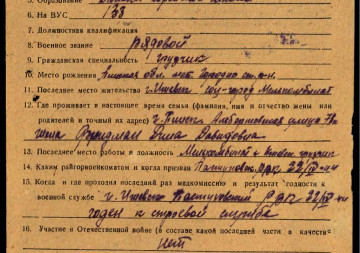 5. Образование
6. На ВУС 133
7. Должностная квалификация
8. Военное звание Рядовой
9. Гражданская специальность грузчик
10. Место рождения обл.
11. Последнее место жительства г. Ижевск
12. Где проживает в настоящее время семья (фамилия, имя и отчество жены или
родителей и точный их адрес) г. Ижевск улица
жена Фридман Дина Давидовна
13. Последнее место работы и должность грузчик
14. Каким райгорвоенкоматом и когда призван Пастуховск. РВК 22/IV-44
15. Когда и где проходил последний раз медкомиссию и результат годности к
военной службе г. Ижевск Пастуховский РВК 22/IV 44
годен к строевой службе
16. Участие в Отечественной войне (в составе какой последней части в качестве
нет